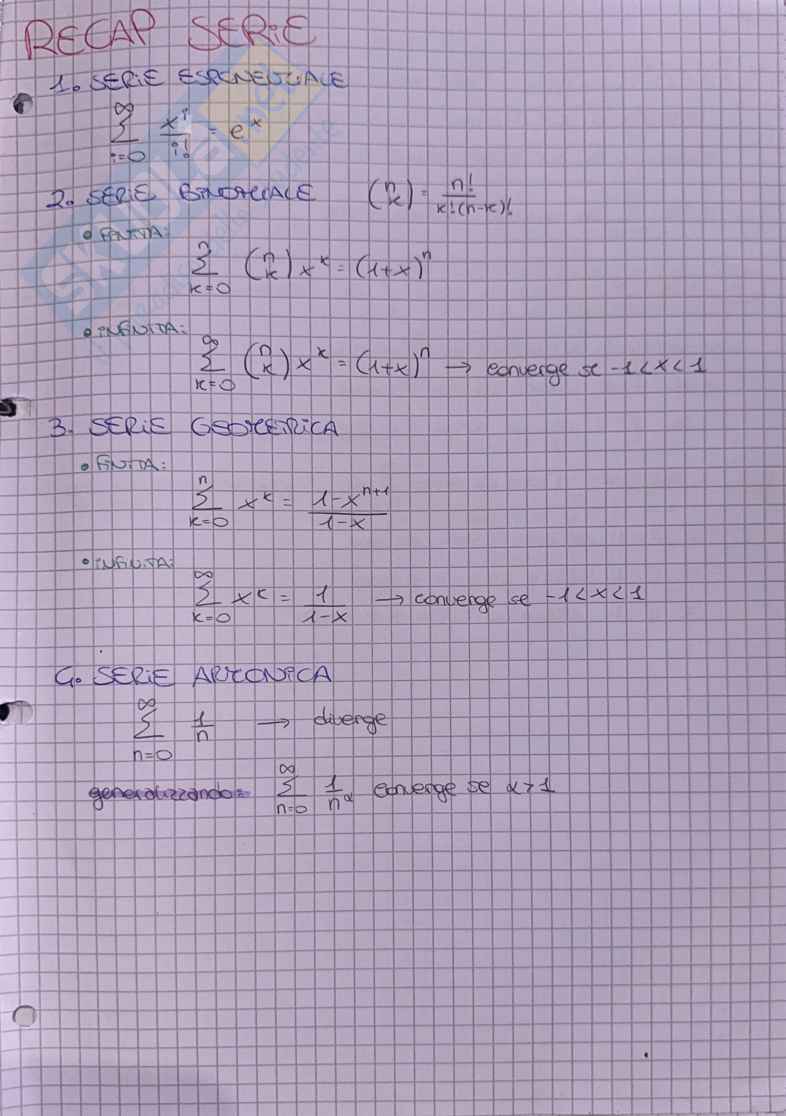 RECAP SERIE
1. SERIE ESPONENZIALE
∞ ∑ i=0 x^i / i! = e^x
2. SERIE BINOMIALE (n k) = n! / k!(n-k)!
• FINITA:
n ∑ k=0 (n k) x^k = (1+x)^n
• INFINITA:
∞ ∑ k=0 (n k) x^k = (1+x)^n → converge se -1<x<1
3. SERIE GEOMETRICA
• FINITA:
n ∑ k=0 x^k = 1-x^{n+1} / 1-x
• INFINITA:
∞ ∑ k=0 x^k = 1 / 1-x → converge se -1<x<1
4. SERIE ARMONICA
∞ ∑ n=0 1/n → diverge
generalizzando: ∞ ∑ n=0 1/n^α converge se α>1